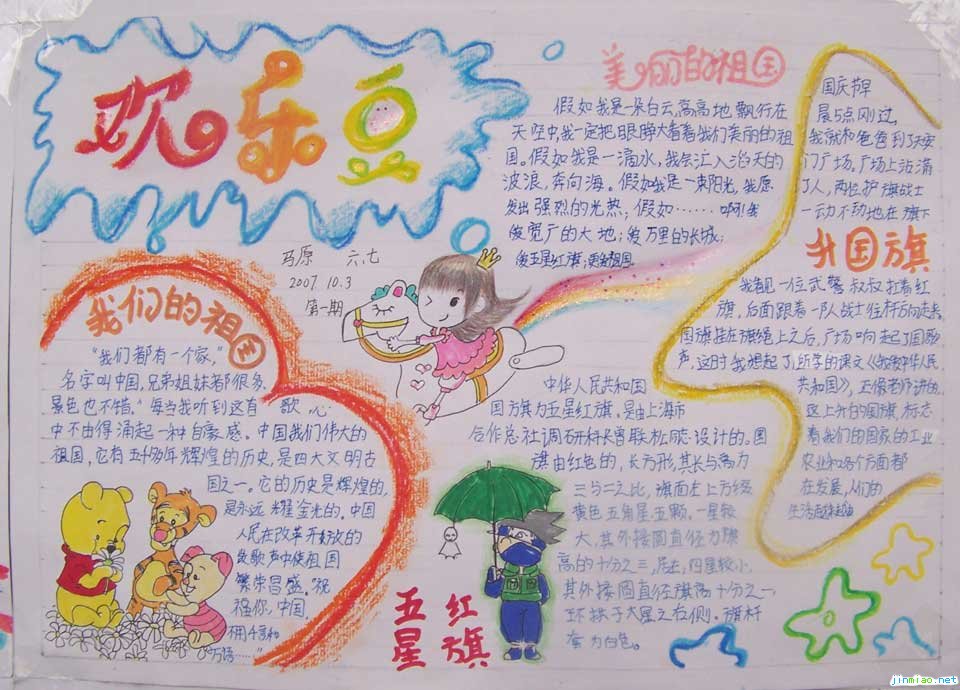 欢乐豆
马原 六.七
2007.10.3
第一期
美丽的祖国
假如我是一朵白云,高高地飘行在
天空中,我一定把眼睁大看着我们美丽的祖
国。假如我是一滴水,我会汇入滔天的
波浪,奔向海。假如我是一束阳光,我愿
发出强烈的光热;假如……啊!我
爱宽广的大地;爱万里的长城;
爱五星红旗;更爱祖国
国庆节早
晨5点刚过,
我就和爸爸到了天安
门广场。广场上站满
了人,两位护旗战士
一动不动地在旗下
升国旗
我看见一位武警叔叔扛着红
旗,后面跟着一队战士往杆方向走来
国旗挂在旗绳上之后,广场响起了国歌
声,这时我想起了所学的课文《我爱中华人民
共和国》,正像老师讲的
这上升的国旗,标志
着我们的国家的工业
农业和各个方面都
在发展,人们的
生活越来越
我们的祖国
“我们都有一个家,”
名字叫中国,兄弟姐妹都很多,
景色也不错。”每当我听到这首歌,心
中不由得涌起一种自豪感。中国我们伟大的
祖国,它有五千多年辉煌的历史,是四大文明古
国之一。它的历史是辉煌的,
是永远耀金光的。中国
人民在改革开放的
歌声中使祖国
繁荣昌盛。祝
福你,中国.
万语……”
中华人民共和国
国旗为五星红旗。是由上海市
合作总社调研科长曾联松 设计的。国
旗由红色的,长方形,其长与高为
三与二之比,旗面左上方缀
黄色五角星五颗。一星较
大,其外接圆直径为旗
高的十分之三,居左,四星较小.
其外接圆直径旗高十分之一,
环拱于大星之右侧。旗杆
套为白色。
五星红旗
jinmiao.net